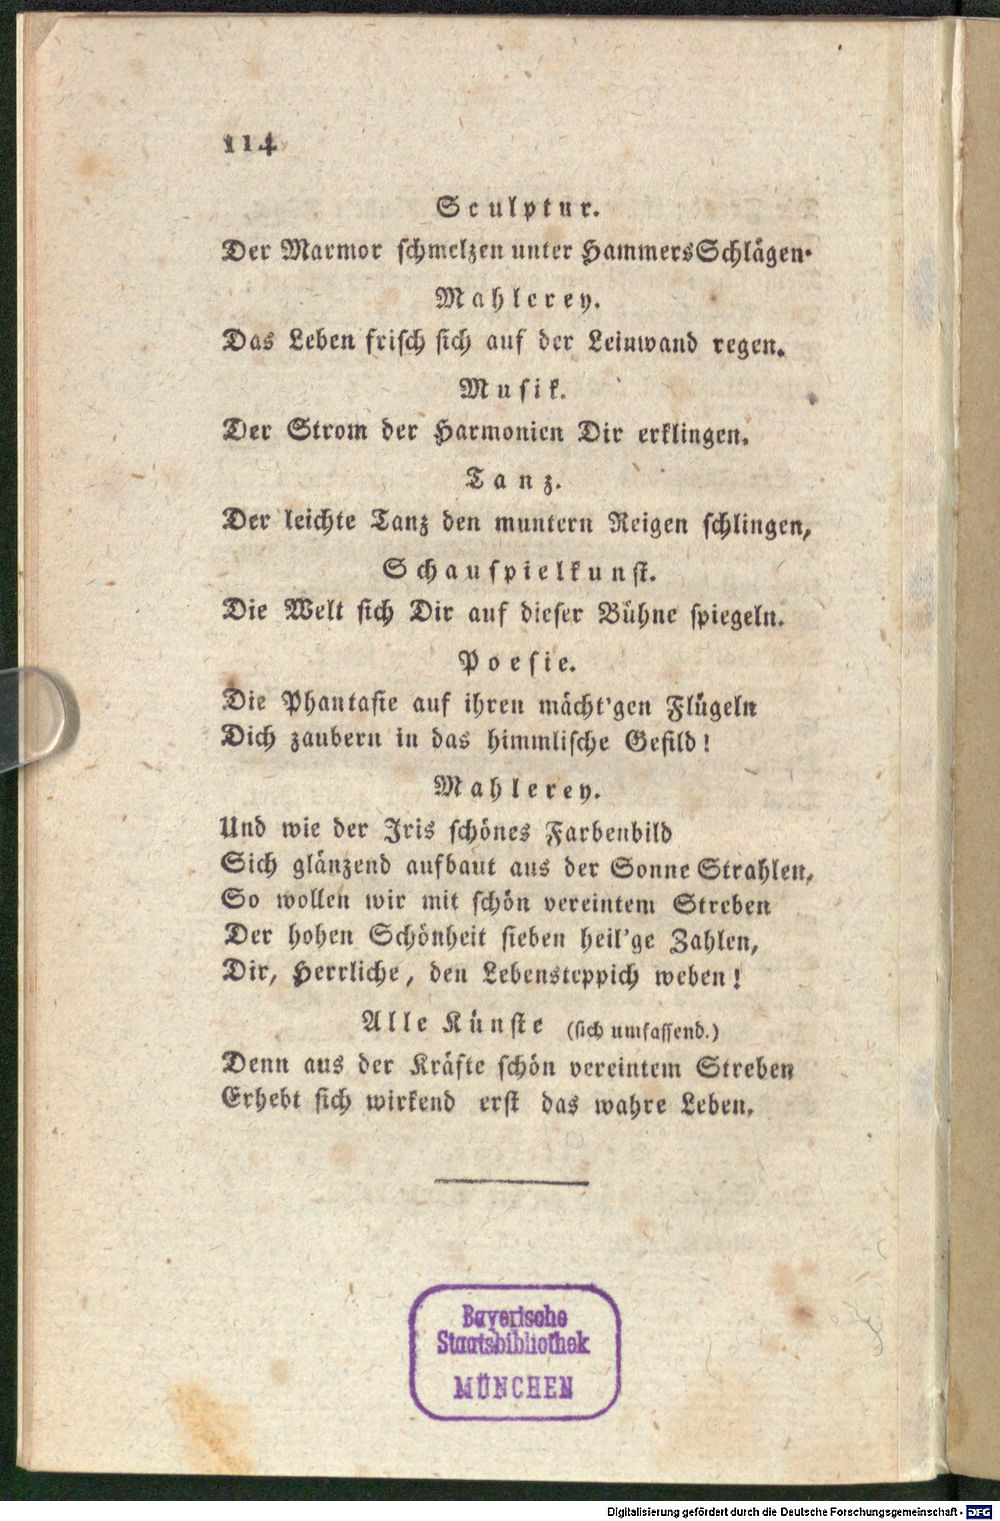 114
Sculptur.
Der Marmor schmelzen unter Hammers Schlägen.
Mahlerey.
Das Leben frisch sich auf der Leinwand regen.
Musik.
Der Strom der Harmonien Dir erklingen.
Tanz.
Der leichte Tanz den muntern Reigen schlingen,
Schauspielkunst.
Die Welt sich Dir auf dieser Bühne spiegeln.
Poesie.
Die Phantasie auf ihren mächt'gen Flügeln
Dich zaubern in das himmlische Gefild!
Mahlerey.
Und wie der Iris schönes Farbenbild
Sich glänzend aufbaut aus der Sonne Strahlen,
So wollen wir mit schön vereintem Streben
Der hohen Schönheit sieben heil'ge Zahlen,
Dir, Herrliche, den Lebensteppich weben!
Alle Künste (sich umfassend.)
Denn aus der Kräfte schön vereintem Streben
Erhebt sich wirkend erst das wahre Leben.
Bayerische
Staatsbibliothek
MÜNCHEN
Digitalisierung gefördert durch die Deutsche Forschungsgemeinschaft - DFG